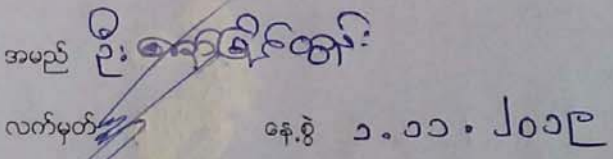 အမည် ဦး
လက်မှတ် နေ့စွဲ ၁.၁၁.၂၀၁၉